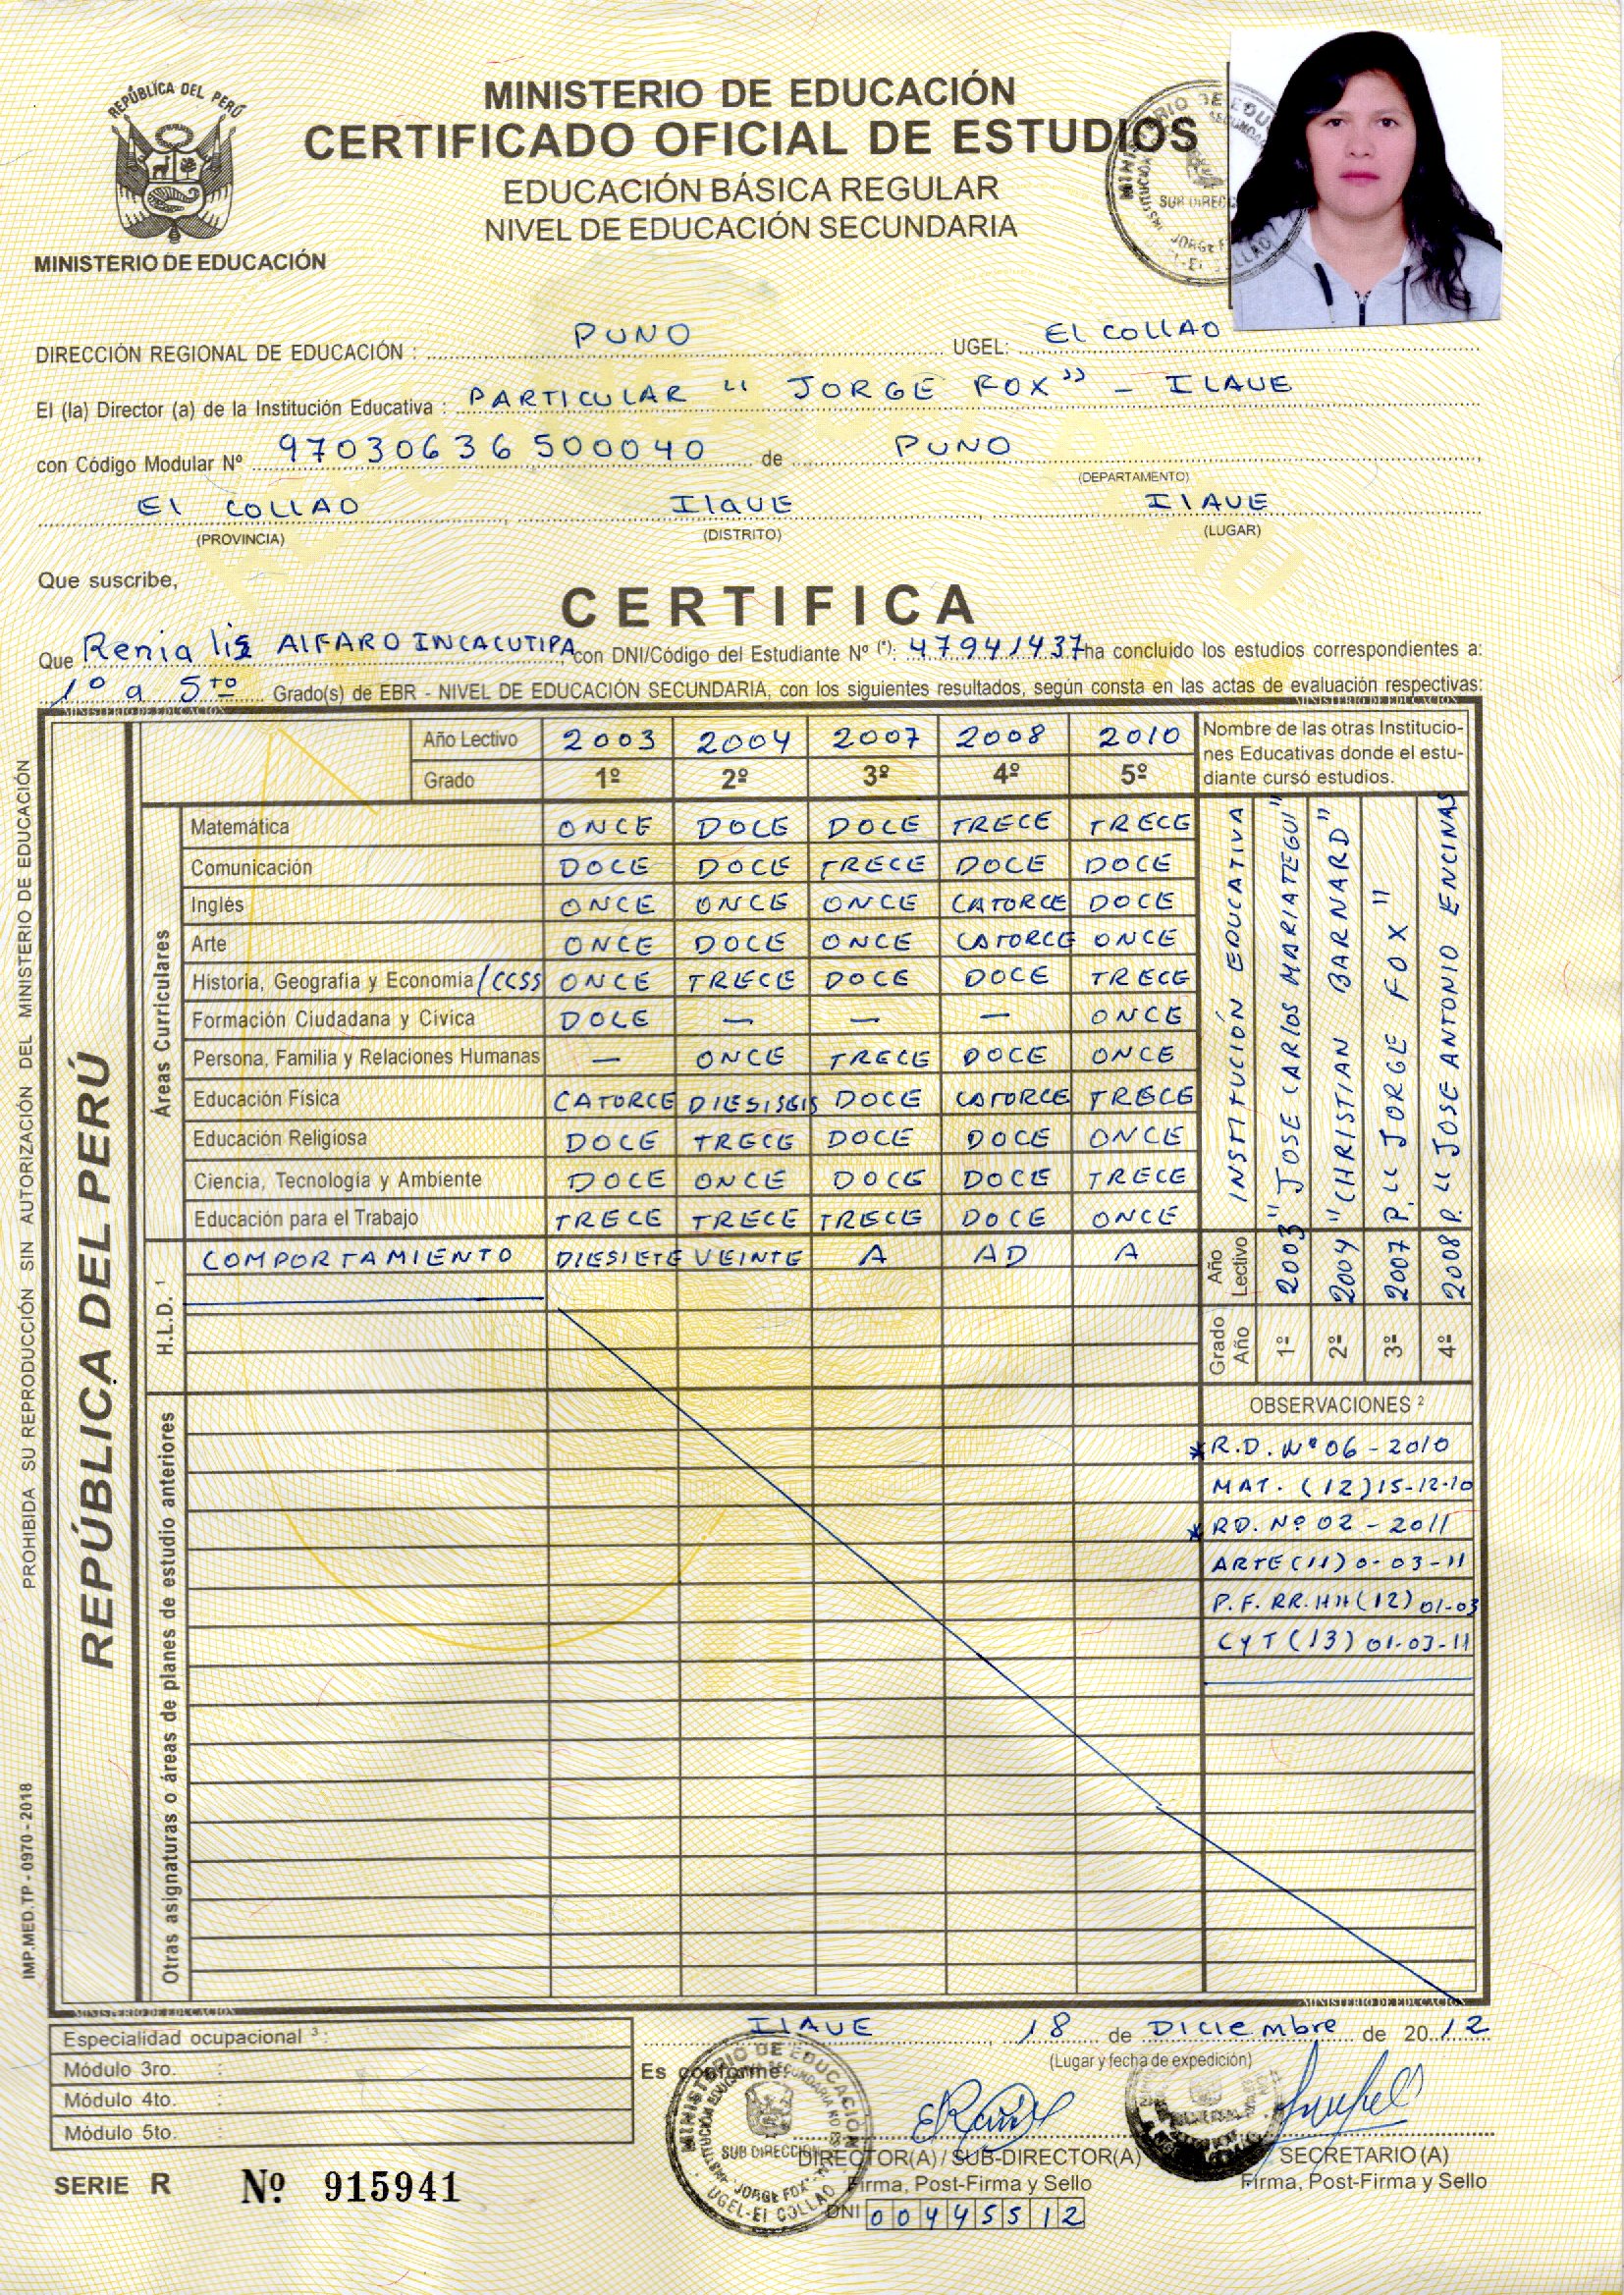 REPÚBLICA DEL PERÚ
MINISTERIO DE EDUCACIÓN
MINISTERIO DE EDUCACIÓN
CERTIFICADO OFICIAL DE ESTUDIOS
EDUCACIÓN BÁSICA REGULAR
NIVEL DE EDUCACIÓN SECUNDARIA
DIRECCIÓN REGIONAL DE EDUCACIÓN : PUNO UGEL: El COllAO
El (la) Director (a) de la Institución Educativa : PARTICULAR “ JORGE FOX” - ILAVE
con Código Modular Nº 97030636500040 de PUNO
(DEPARTAMENTO)
El COLLAO IlaVE IlAVE
(PROVINCIA) (DISTRITO) (LUGAR)
Que suscribe,
CERTIFICA
Que Renia liz ALFARO INCACUTIPA con DNI/Código del Estudiante Nº (*): 47941437 ha concluido los estudios correspondientes a:
1º a 5to Grado(s) de EBR - NIVEL DE EDUCACIÓN SECUNDARIA, con los siguientes resultados, según consta en las actas de evaluación respectivas:
MINISTERIO DE EDUCACIÓN MINISTERIO DE EDUCACIÓN
Año Lectivo 2003 2004 2007 2008 2010
Grado 1º 2º 3º 4º 5º
Nombre de las otras Institucio-
nes Educativas donde el estu-
diante cursó estudios.
Áreas Curriculares
Matemática ONCE DOCE DOCE TRECE TRECE
Comunicación DOCE DOCE TRECE DOCE DOCE
Inglés ONCE ONCE ONCE CATORCE DOCE
Arte ONCE DOCE ONCE CATORCE ONCE
Historia, Geografía y Economía /CCSS ONCE TRECE DOCE DOCE TRECE
Formación Ciudadana y Cívica DOCE — — — ONCE
Persona, Familia y Relaciones Humanas — ONCE TRECE DOCE ONCE
Educación Física CATORCE DIESISEIS DOCE CATORCE TRECE
Educación Religiosa DOCE TRECE DOCE DOCE ONCE
Ciencia, Tecnología y Ambiente DOCE ONCE DOCE DOCE TRECE
Educación para el Trabajo TRECE TRECE TRECE DOCE ONCE
H.L.D. ¹
COMPORTAMIENTO DIESIETE VEINTE A AD A
Grado Año Año Lectivo INSTITUCIÓN EDUCATIVA
1º 2003 "JOSE CARlos MARIATEGUI"
2º 2004 "CHRISTIAN BARNARD"
3º 2007 P. “ JORGE FOX "
4º 2008 P. “ JOSE ANTONIO ENCINAS
Otras asignaturas o áreas de planes de estudio anteriores
OBSERVACIONES ²
*R.D. Nº 06 - 2010
MAT. (12) 15-12-10
*RD. Nº 02 - 2011
ARTE (11) 0-03-11
P.F. RR.HH (12) 01-03
CYT (13) 01-03-11
MINISTERIO DE EDUCACIÓN MINISTERIO DE EDUCACIÓN
REPÚBLICA DEL PERÚ
PROHIBIDA SU REPRODUCCIÓN SIN AUTORIZACIÓN DEL MINISTERIO DE EDUCACIÓN
IMP.MED.TP - 0970 - 2018
Especialidad ocupacional ³ :
Módulo 3ro. :
Módulo 4to. :
Módulo 5to. :
IlAVE, 18 de Diciembre de 2012
(Lugar y fecha de expedición)
Es conforme:
MINISTERIO DE EDUCACIÓN
SUB DIRECCION
"JORGE FOX"
UGEL-El COLLAO
DIRECTOR(A) / SUB-DIRECTOR(A)
Firma, Post-Firma y Sello
DNI 00445512
SECRETARIO (A)
Firma, Post-Firma y Sello
SERIE R Nº 915941